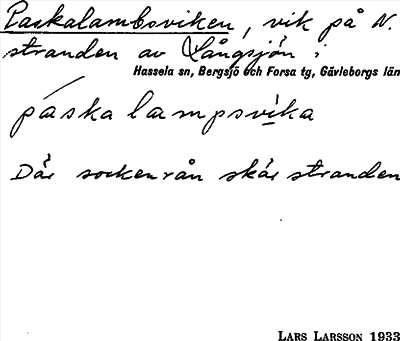 Paskalambsviken, vik på N.
stranden av Långsjön i
Hassela sn, Bergsjö och Forsa tg, Gävleborgs län
páska lampsvika
Där sockenrån skär stranden
LARS LARSSON 1933